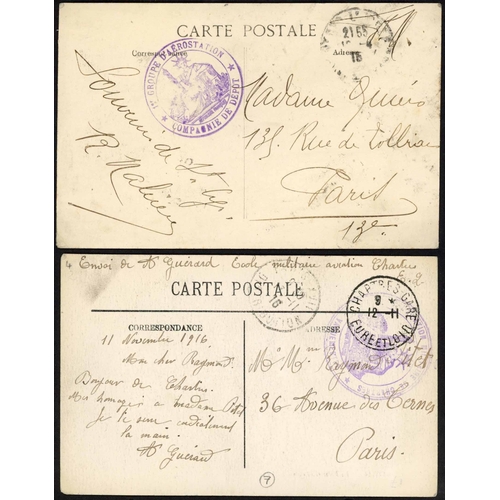 CARTE POSTALE
Correspondance
Adresse
1er GROUPE D'AÉROSTATION
★ COMPAGNIE DE DÉPOT ★
21 55
15
Souvenir de St Cyr
R.
Madame
135 Rue de Tolbiac
Paris
13e
Envoi de H Guérard Ecole militaire aviation Chartres
E. & L
CARTE POSTALE
CORRESPONDANCE
ADRESSE
CHARTRES GARE
9 *
12-11
EURE ET LOIR
11 Novembre 1916
Mon cher Raymond
Bonjour de Chartres.
Mes homages à madame
Je te serre cordialement
la main.
H Guérard
Mr Mme Raymond
36 Avenue des Ternes
Paris.
7